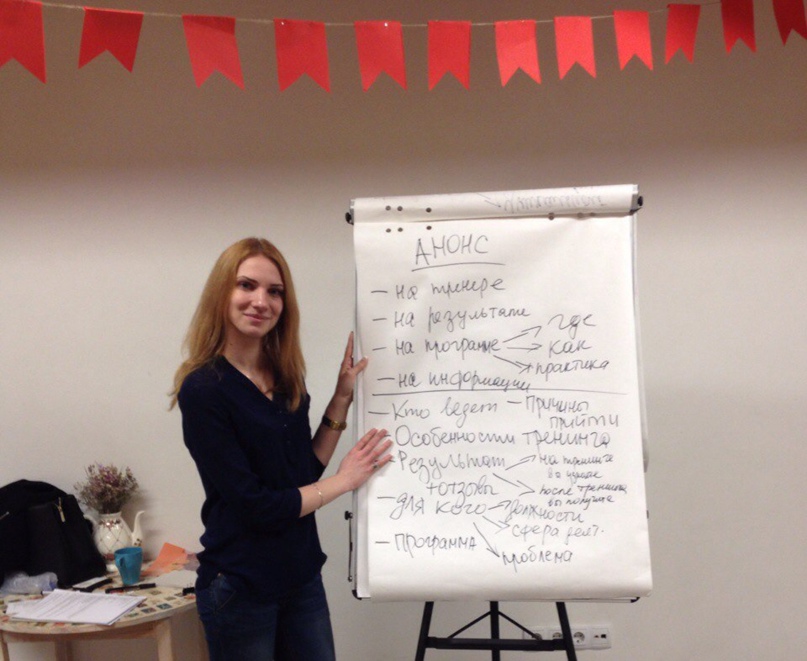 АНОНС
– на тренере
– на результате
– на программе → где
→ как
→ практика
– на информации
– Кто ведет – Причины
прийти
– Особенности тренинга
– Результат → на тренинге
→ после тренинга
+отзывы вы получите
– для кого → должности
→ сфера деят.
→ проблема
– Программа